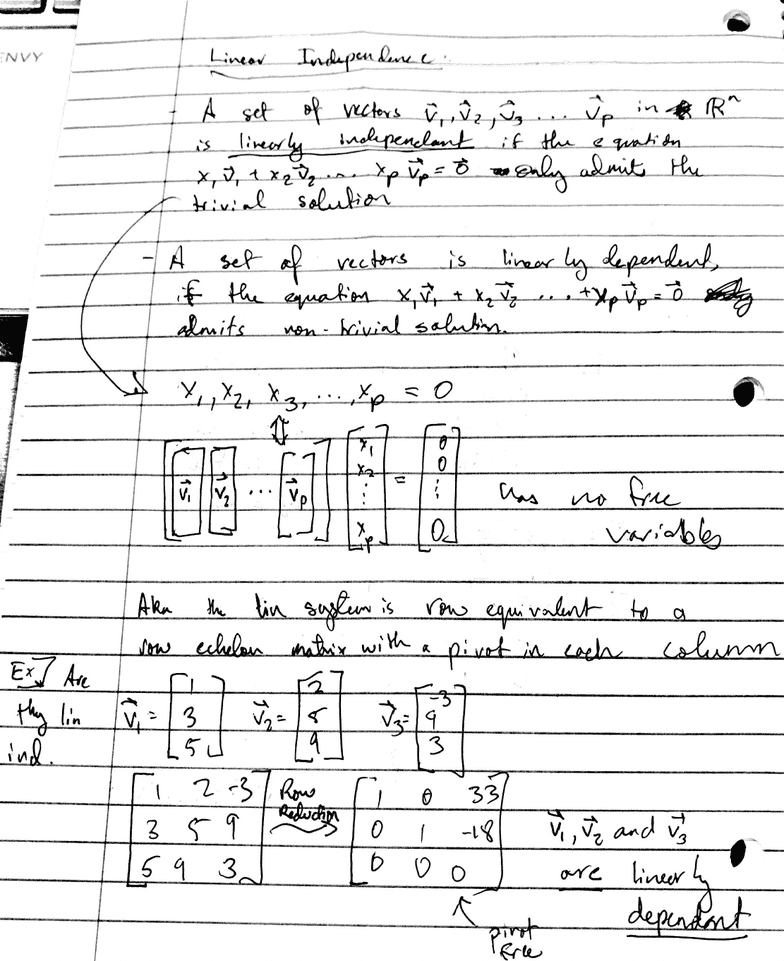 ENVY
Linear Independence:
- A set of vectors v⃗₁, v⃗₂, v⃗₃ ... v⃗ₚ in ℝⁿ
is linearly independant if the equation
x₁v⃗₁ + x₂v⃗₂ ... xₚv⃗ₚ = 0⃗ only admits the
trivial solution
- A set of vectors is linearly dependent,
if the equation x₁v⃗₁ + x₂v⃗₂ ... + xₚv⃗ₚ = 0⃗
admits non-trivial solution.
x₁, x₂, x₃, ..., xₚ = 0
⇕
[[v⃗₁] [v⃗₂] ... [v⃗ₚ]] [x₁ x₂ ⋮ xₚ] = [0 0 ⋮ 0] has no free
variables
Aka the lin system is row equivalent to a
row echelon matrix with a pivot in each column
Ex] Are
they lin
ind.
v⃗₁ = [1 3 5] v⃗₂ = [2 5 9] v⃗₃ = [-3 9 3]
[1 2 -3
3 5 9
5 9 3]
Row
Reduction
→
[1 0 33
0 1 -18
0 0 0]
↑
pivot
free
v⃗₁, v⃗₂ and v⃗₃
are linearly
dependant